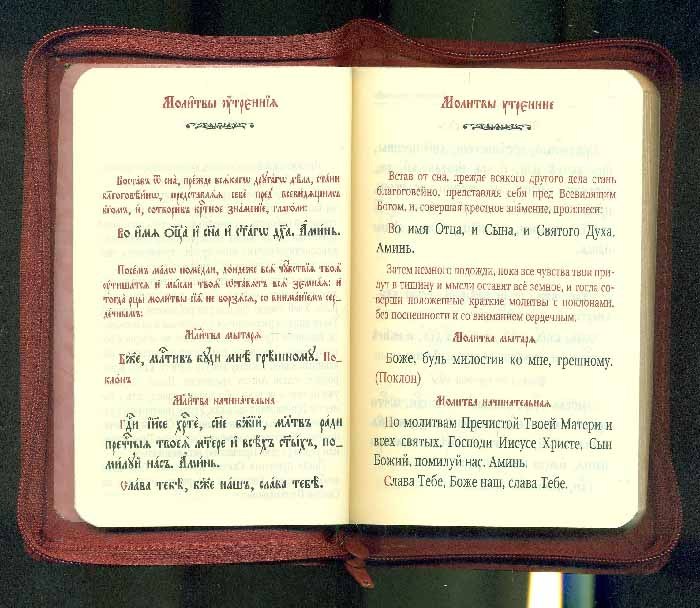 Моли̑твы ᲂу҆́трєннїѧ
Воста́въ ѿ сна̀, пре́жде всѧ́кагѡ дрꙋга́гѡ дѣ́ла, ста́ни
бл҃гоговѣ́йнѡ, представлѧ́ѧ себѐ пред̾ всеви́дѧщимъ
бг҃омъ, и҆, сотвори́въ крⷭ҇тное зна́менїе, глаго́ли:
Во и҆́мѧ ѻ҆ц҃а̀ и҆ сн҃а и҆ ст҃а́гѡ дх҃а. А҆ми́нь.
Посе́мъ ма́лѡ поме́дли, до́ндеже всѧ̑ чꙋ̑вствїѧ твоѧ̑
ᲂу҆тиша́тсѧ и҆ мы́сли твоѧ̑ ѡ҆ста́вѧтъ всѧ̑ земна́ѧ: и҆
тогда̀ рцы̀ моли́твы сїѧ̑ не борзѧ́сѧ, со внима́нїемъ сер-
де́чнымъ:
Мл҃тва мытарѧ̀
Бж҃е, ми́лⷭ҇тивъ бꙋ́ди мнѣ̀ грѣ́шномꙋ. По-
кло́нъ
Мл҃тва начина́тельна
Гдⷭ҇и і҆и҃се хрⷭ҇тѐ, сн҃е бж҃їй, мл҃твъ ра́ди
пречⷭ҇тыѧ твоеѧ̀ мт҃ере и҆ всѣ́хъ ст҃ы́хъ, по-
ми́лꙋй на́съ. А҆ми́нь.
Сла́ва тебѣ̀, бж҃е на́шъ, сла́ва тебѣ̀.
Молитвы утренние
Встав от сна, прежде всякого другого дела стань
благоговейно, представляя себя пред Всевидящим
Богом, и, совершая крестное знамение, произнеси:
Во имя Отца, и Сына, и Святого Духа.
Аминь.
Затем немного подожди, пока все чувства твои при-
дут в тишину и мысли оставят всё земное, и тогда со-
верши положенные краткие молитвы с поклонами,
без поспешности и со вниманием сердечным.
Молитва мытаря
Боже, будь милостив ко мне, грешному.
(Поклон)
Молитва начинательная
По молитвам Пречистой Твоей Матери и
всех святых, Господи Иисусе Христе, Сын
Божий, помилуй нас. Аминь.
Слава Тебе, Боже наш, слава Тебе.